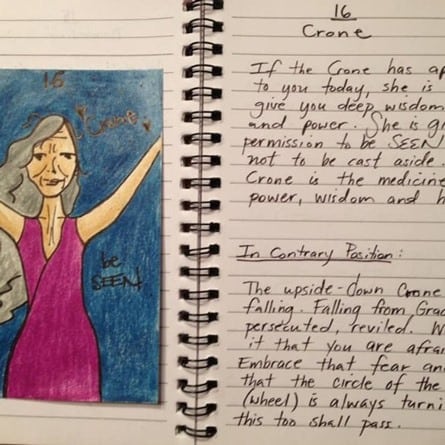 16
Crone
be
SEEN
16
Crone
If the Crone has
to you today, she is
give you deep wisdom
and power. She is
permission to be SEEN
not to be cast aside.
Crone is the medicine
power, wisdom and
In Contrary Position:
The upside-down Crone
falling. Falling from
persecuted, reviled.
it that you are
Embrace that fear
that the circle of the
(wheel) is always
this too shall pass.